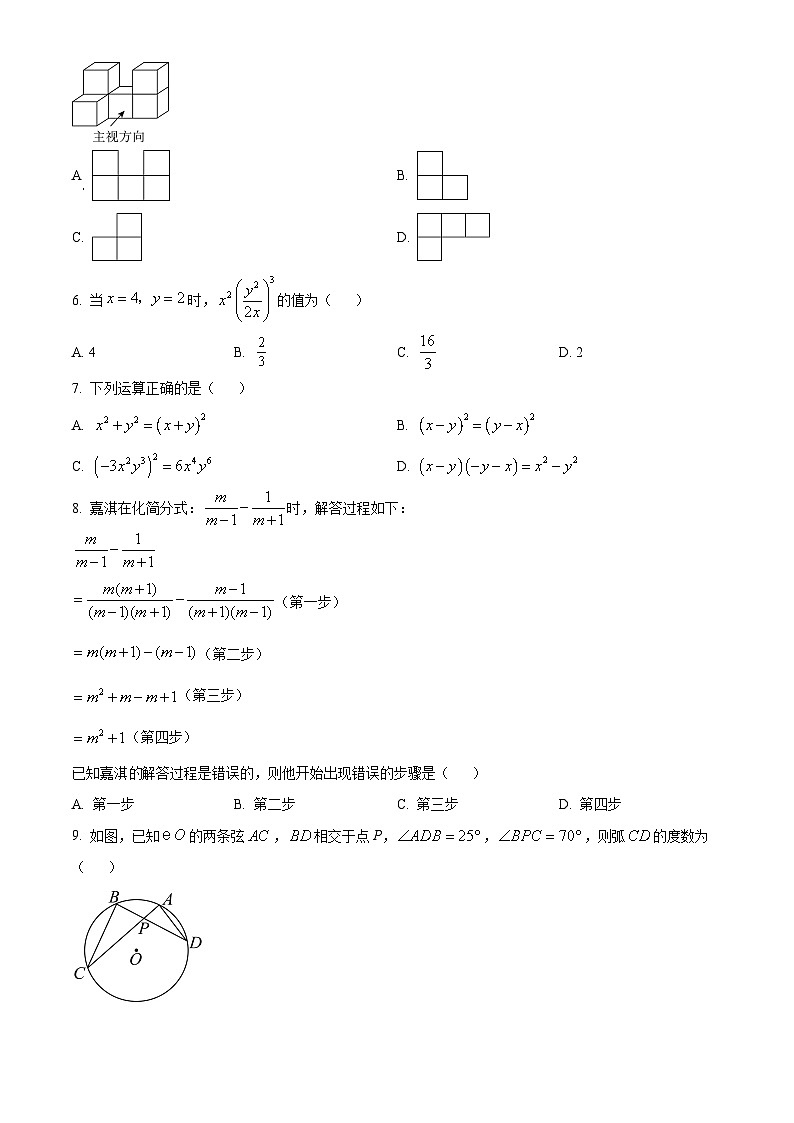 主视方向
A. B.
C. D.
6. 当 x = 4, y = 2 时, x²(y²/2x)³ 的值为( )
A. 4 B. 2/3 C. 16/3 D. 2
7. 下列运算正确的是( )
A. x² + y² = (x + y)² B. (x − y)² = (y − x)²
C. (−3x²y³)² = 6x⁴y⁶ D. (x − y)(−y − x) = x² − y²
8. 嘉淇在化简分式: m/(m−1) − 1/(m+1) 时,解答过程如下:
m/(m−1) − 1/(m+1)
= m(m+1)/((m−1)(m+1)) − (m−1)/((m+1)(m−1)) (第一步)
= m(m+1) − (m−1) (第二步)
= m² + m − m + 1 (第三步)
= m² + 1 (第四步)
已知嘉淇的解答过程是错误的,则他开始出现错误的步骤是( )
A. 第一步 B. 第二步 C. 第三步 D. 第四步
9. 如图,已知 e O 的两条弦 AC , BD 相交于点 P, ∠ADB = 25° , ∠BPC = 70° , 则弧 CD 的度数为
( )
B A
P
D
O
C